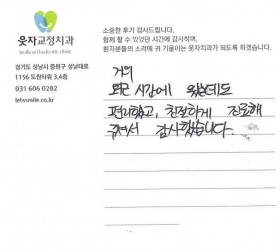 웃자교정치과
경기도 성남시 중원구 성남대로
1156 도원타워 3,4층
031 606 0282
letsmile.co.kr
소중한 후기 감사드립니다.
함께 할 수 있었던 시간에 감사하며,
환자분들의 소리에 귀 기울이는 웃자치과가 되도록 하겠습니다.
거의
퇴근 시간에 왔는데도
편리했고, 친절하게 진료해
주셔서 감사했습니다.